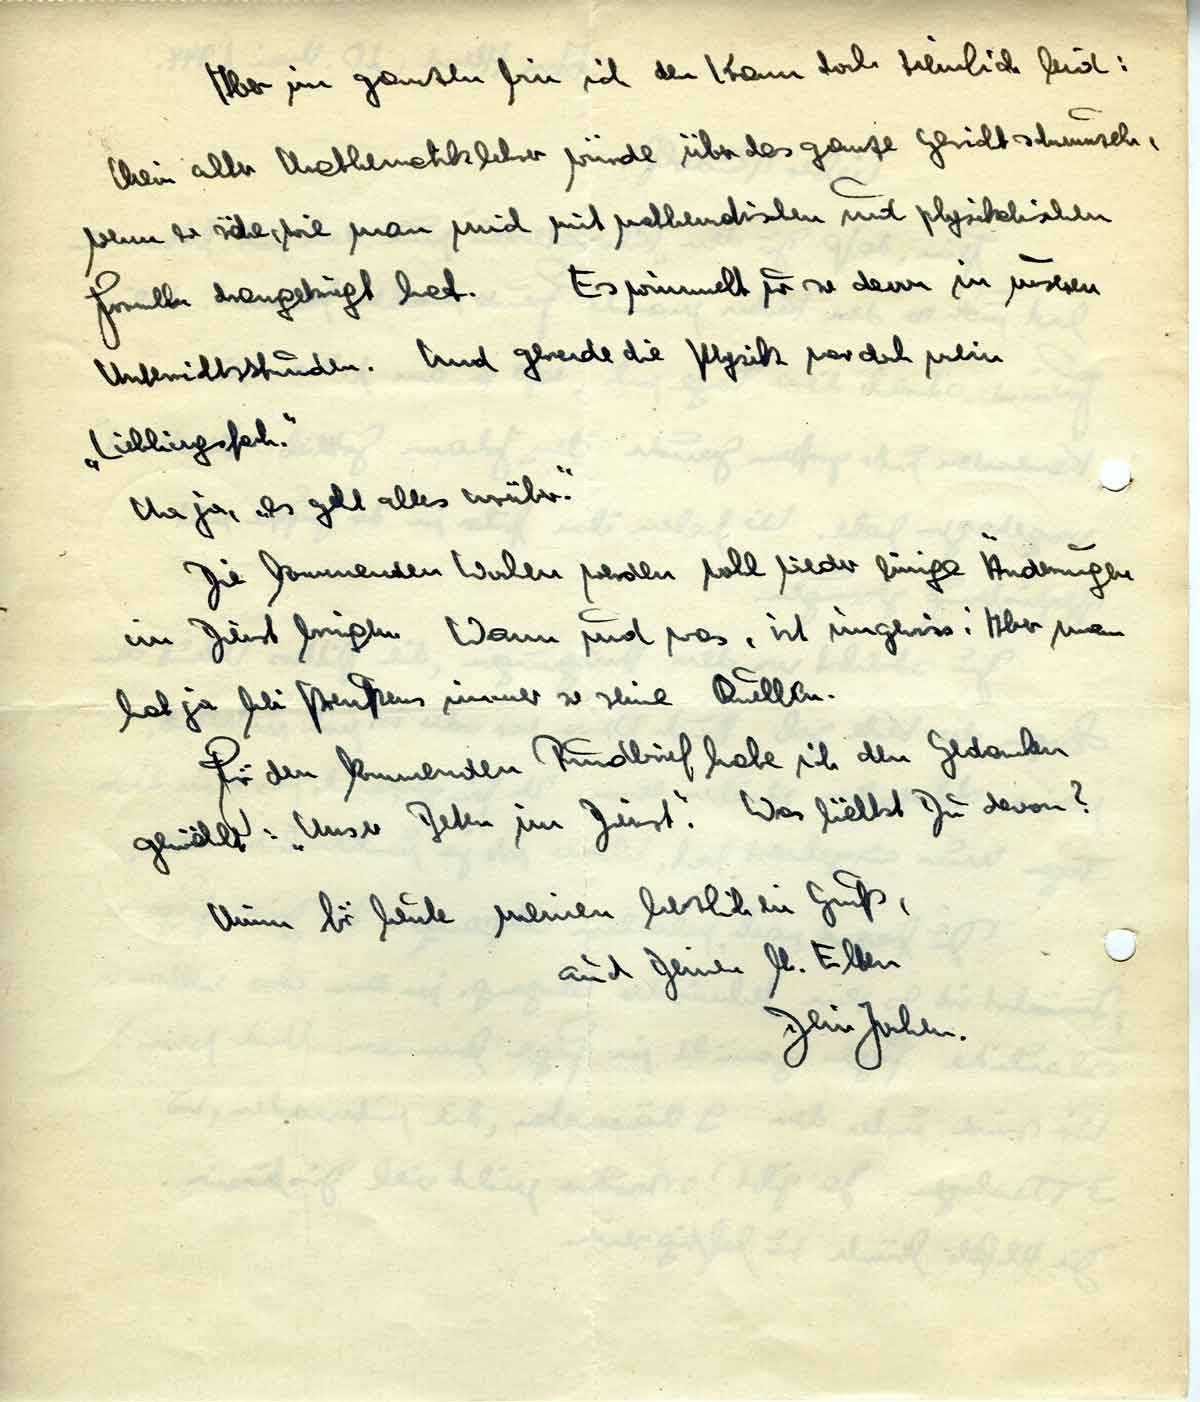 Aber im ganzen bin ich den Kram doch ziemlich leid:
Mein alter Mathematiklehrer würde über das ganze Gesicht schmunzeln,
wenn er sähe, wie man mich mit mathematischen und physikalischen
Formeln drangekriegt hat. Es wimmelt nur so davon in unseren
Unterrichtsstunden. Und gerade die Physik war doch mein
„Lieblingsfach."
Na ja, „es geht alles vorüber."
Die kommenden Wochen werden wohl wieder einige Änderungen
im Dienst bringen. Wann und was, ist ungewiss; Aber man
hat ja bei Preußens immer so seine Quellen.
Für den kommenden Rundbrief habe ich den Gedanken
gewählt: „Unser Beten im Dienst". Was hältst Du davon?
Nimm für heute meinen herzlichen Gruß,
auch Deinen lb. Eltern
Dein